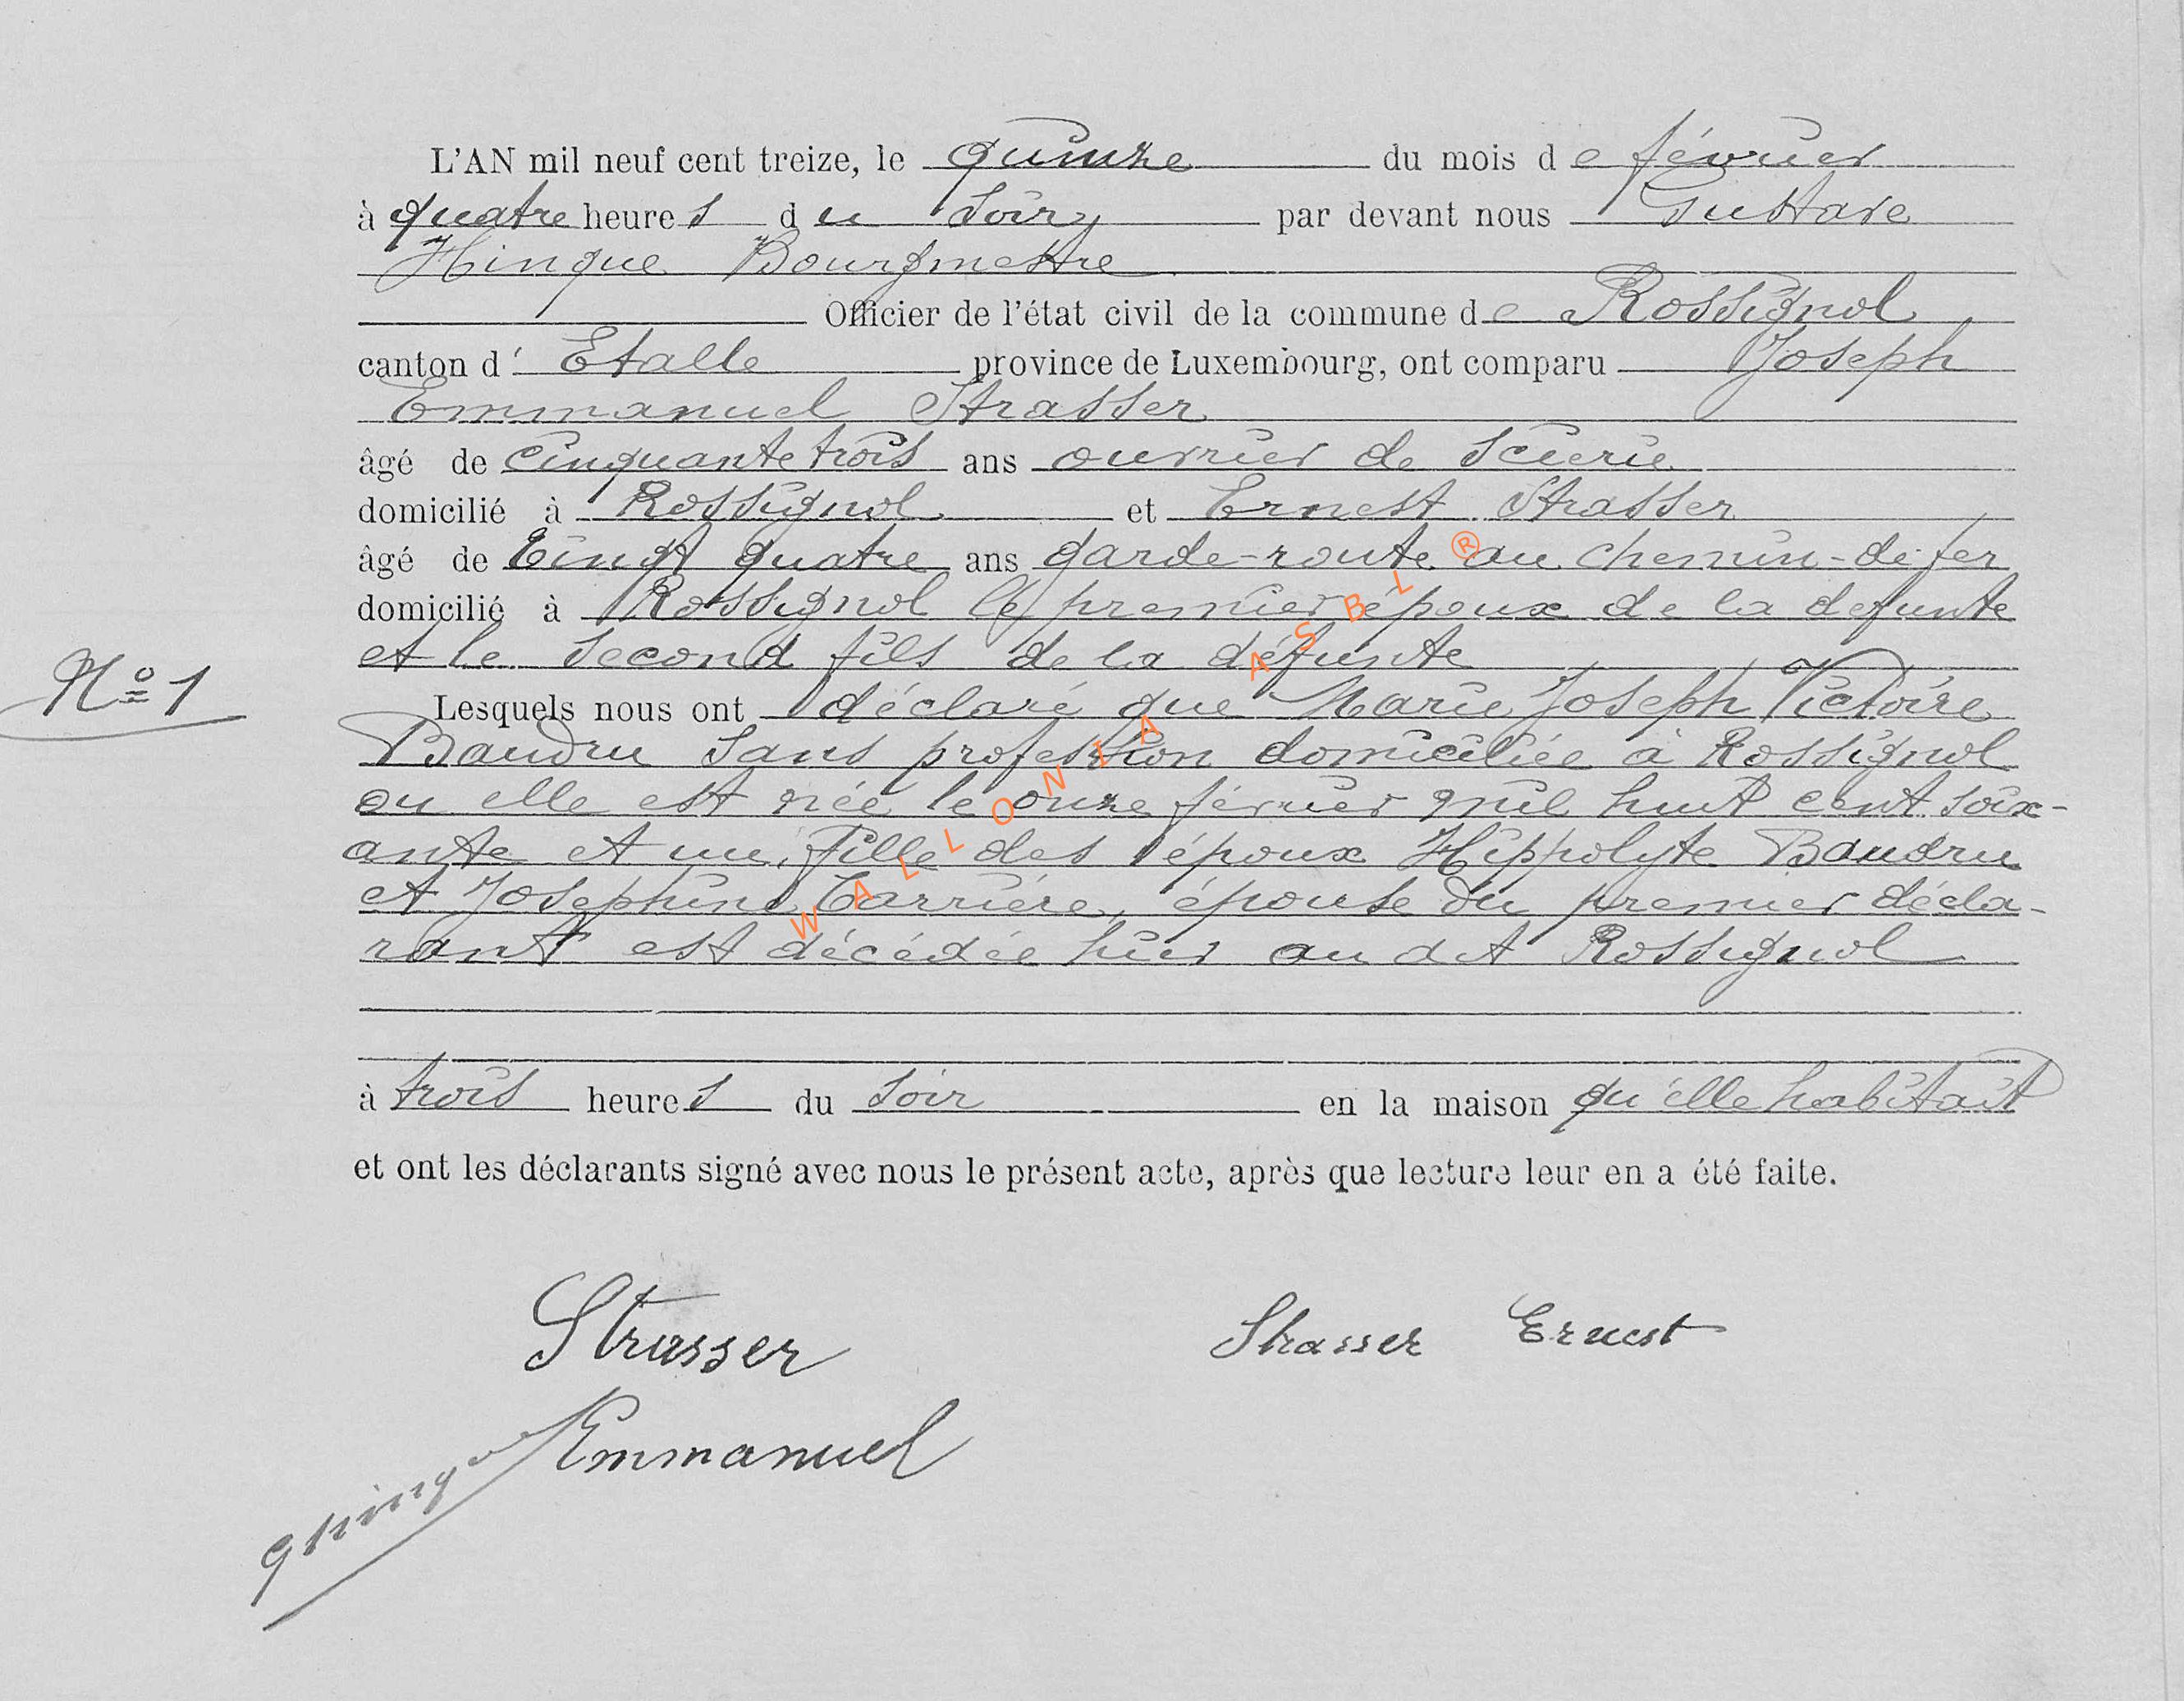 L'AN mil neuf cent treize, le quinze du mois de février
à quatre heures du soir, par devant nous Gustave
Hinque Bourgmestre
Officier de l'état civil de la commune de Rossignol
canton d'Etalle province de Luxembourg, ont comparu Joseph
Emmanuel Strasser
âgé de cinquante trois ans ouvrier de scierie
domicilié à Rossignol et Ernest Strasser
âgé de vingt quatre ans garde-route au chemin-de fer
domicilié à Rossignol le premier époux de la defunte
et le second fils de la défunte
N° 1
Lesquels nous ont déclaré que Marie Joseph Victoire
Baudru sans profession domiciliée à Rossignol
ou elle est née le onze février mil huit cent soix-
ante et un, fille des époux Hippolyte Baudru
et Josephine Carrière, épouse du premier décla-
rant est décédée hier au dit Rossignol
à trois heures du soir en la maison qu'elle habitait
et ont les déclarants signé avec nous le présent acte, après que lecture leur en a été faite.
Strasser
Strasser Ernest
Emmanuel
GHinque
WALLONIA ASBL ®